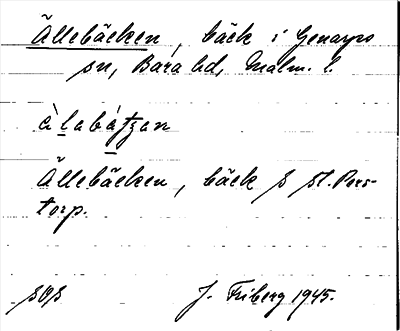 Ällebäcken, bäck i Genarps
sn, Bara hd, Malm. l.
àlabátzan
Ällebäcken, bäck S St. Pers-
torp.
SOS J. Friberg 1945.